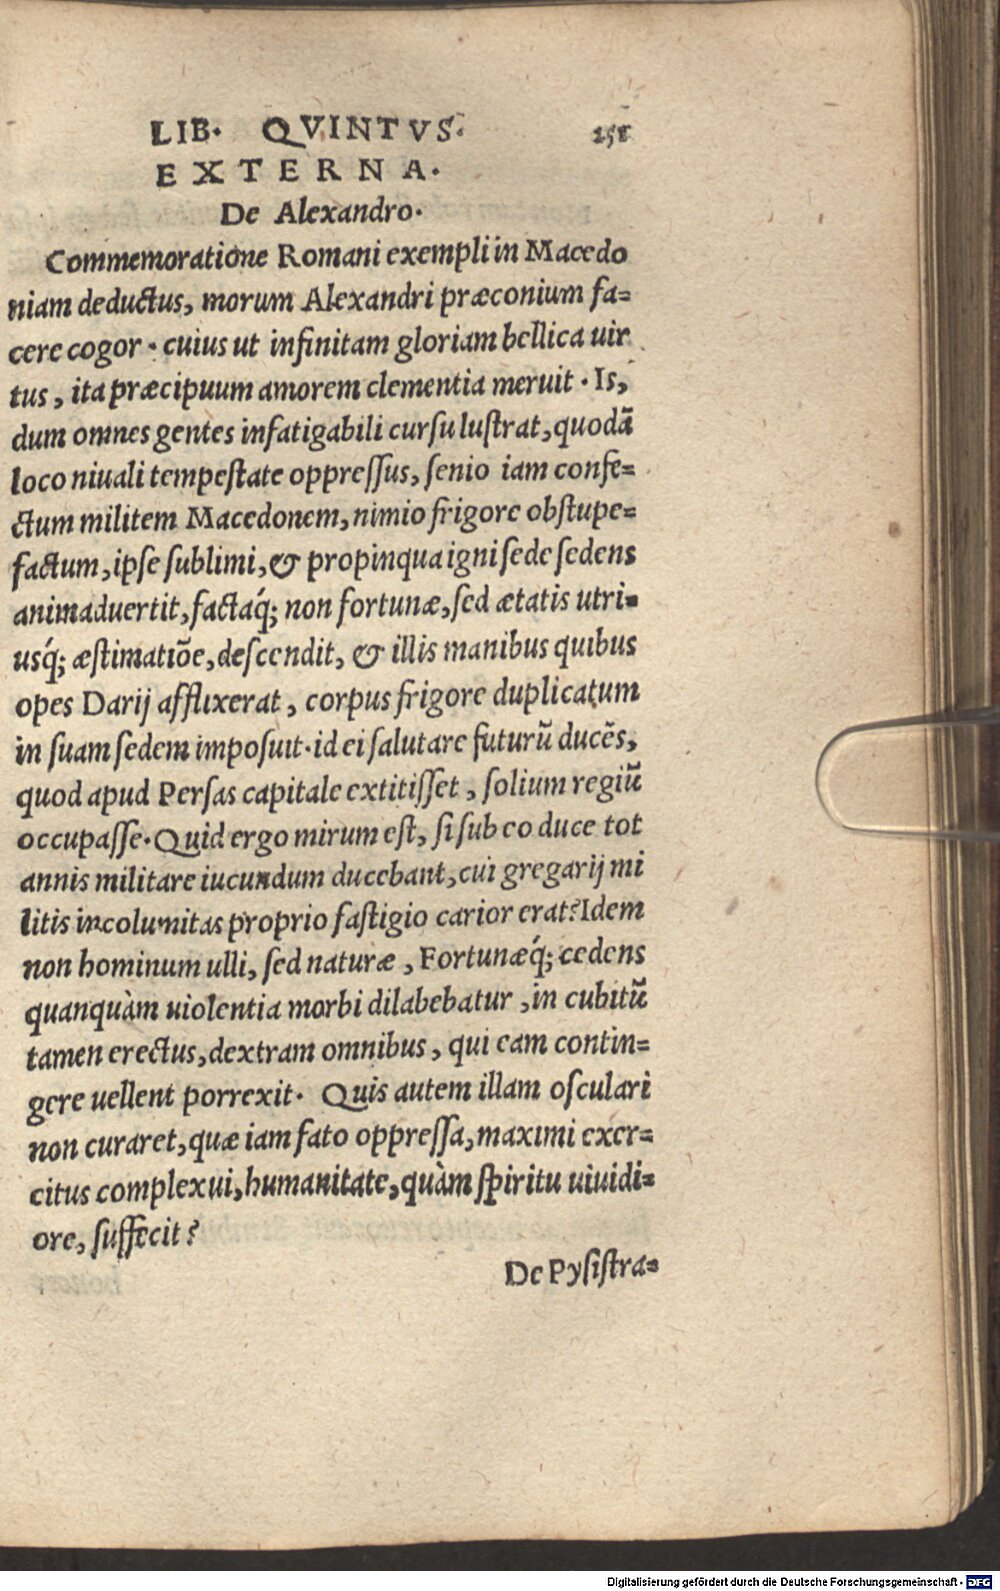 LIB. QVINTVS. 251
EXTERNA.
De Alexandro.
Commemoratione Romani exempli in Macedo
niam deductus, morum Alexandri præconium fa=
cere cogor. cuius ut infinitam gloriam bellica uir
tus, ita præcipuum amorem clementia meruit. Is,
dum omnes gentes infatigabili cursu lustrat, quodã
loco niuali tempestate oppressus, senio iam confe=
ctum militem Macedonem, nimio frigore obstupe=
factum, ipse sublimi, & propinqua igni sede sedens
animaduertit, factaq́; non fortunæ, sed ætatis utri=
usq́; æstimatiõe, descendit, & illis manibus quibus
opes Darij afflixerat, corpus frigore duplicatum
in suam sedem imposuit. id ei salutare futurũ ducẽs,
quod apud Persas capitale extitisset, solium regiũ
occupasse. Quid ergo mirum est, si sub eo duce tot
annis militare iucundum ducebant, cui gregarij mi
litis incolumitas proprio fastigio carior erat? Idem
non hominum ulli, sed naturæ, Fortunæq́; cedens
quanquàm uiolentia morbi dilabebatur, in cubitũ
tamen erectus, dextram omnibus, qui eam contin=
gere uellent porrexit. Quis autem illam osculari
non curaret, quæ iam fato oppressa, maximi exer=
citus complexui, humanitate, quàm spiritu uiuidi=
ore, suffecit?
De Pysistra=
Digitalisierung gefördert durch die Deutsche Forschungsgemeinschaft - DFG